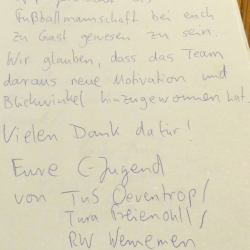 Fußballmannschaft bei euch
zu Gast gewesen zu sein.
Wir glauben, dass das Team
daraus neue Motivation und
Blickwinkel hinzugewonnen hat.
Vielen Dank dafür!
Eure C-Jugend
von TuS Oeventrop/
Tura Freienohl/
RW Wennemen